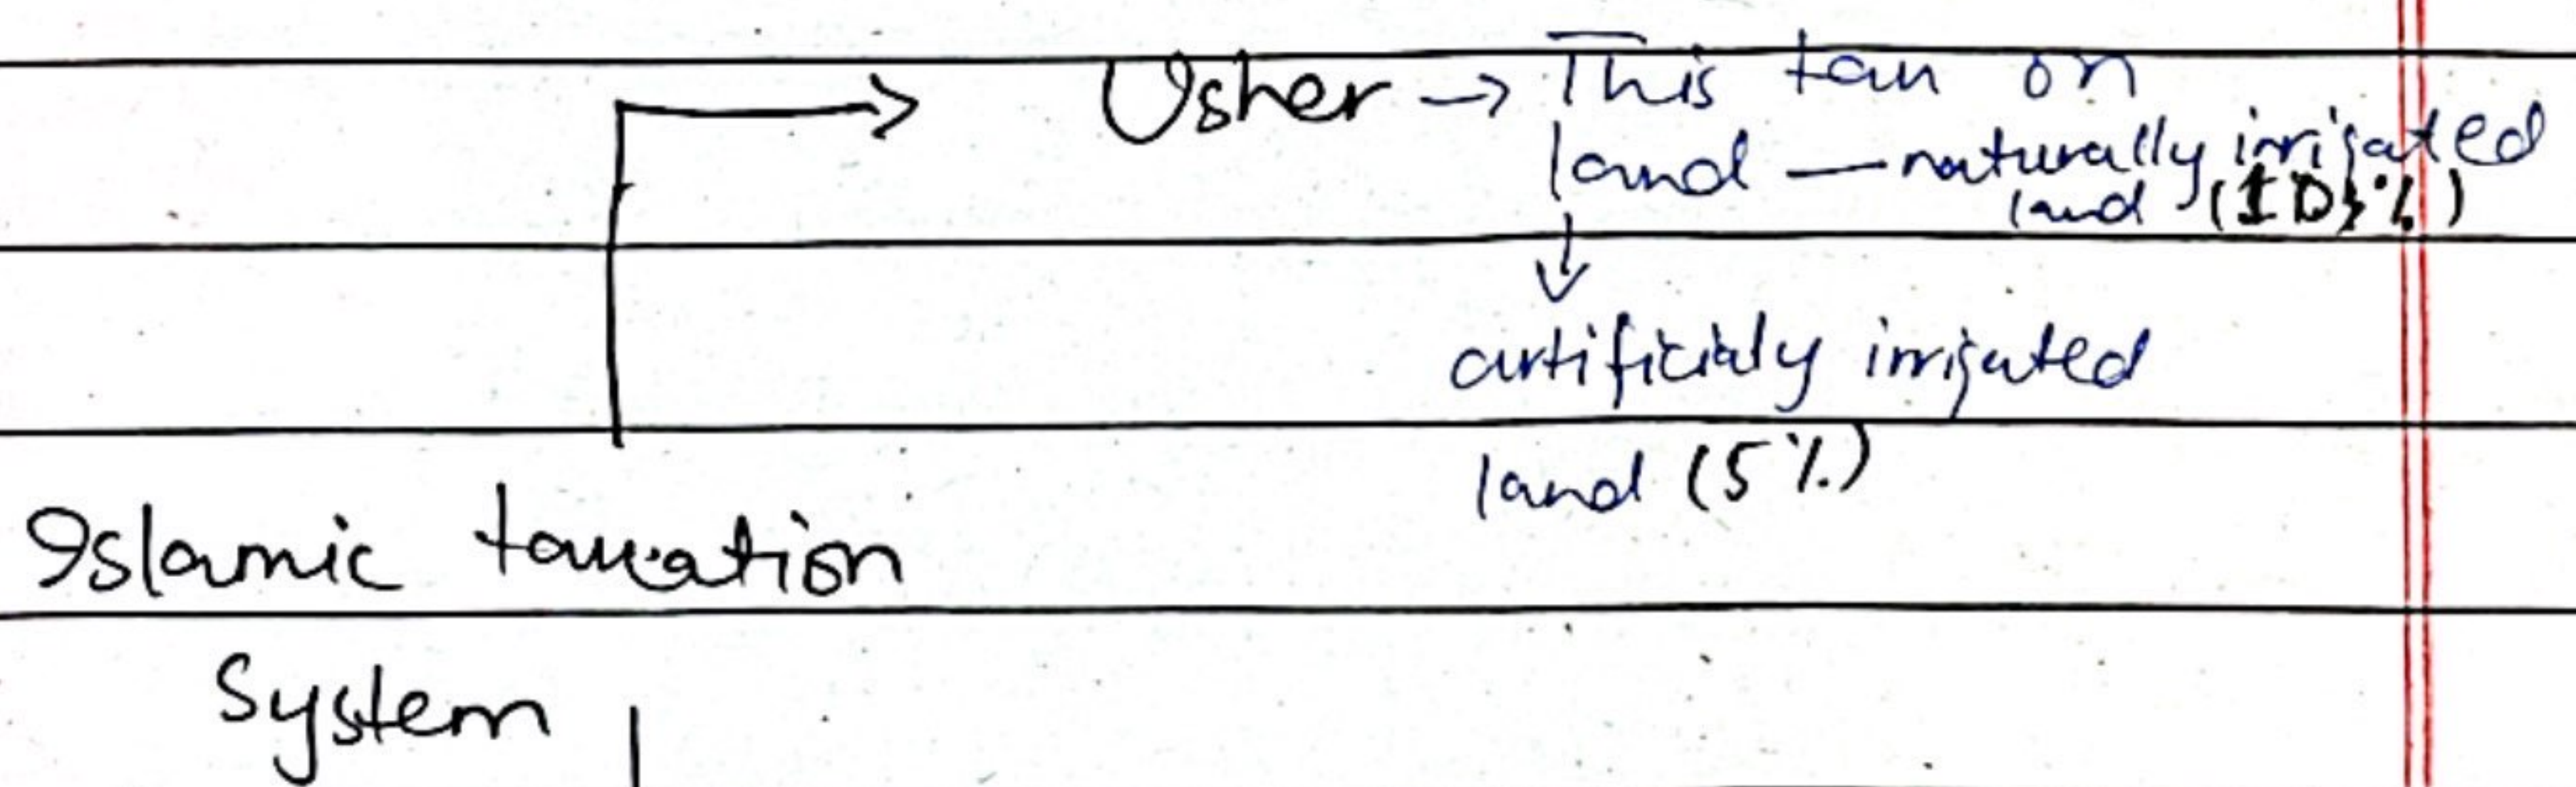 Usher → This tax on
land — naturally irrigated
land (10%)
↓
artificialy irrigated
land (5%)
Islamic taxation
System